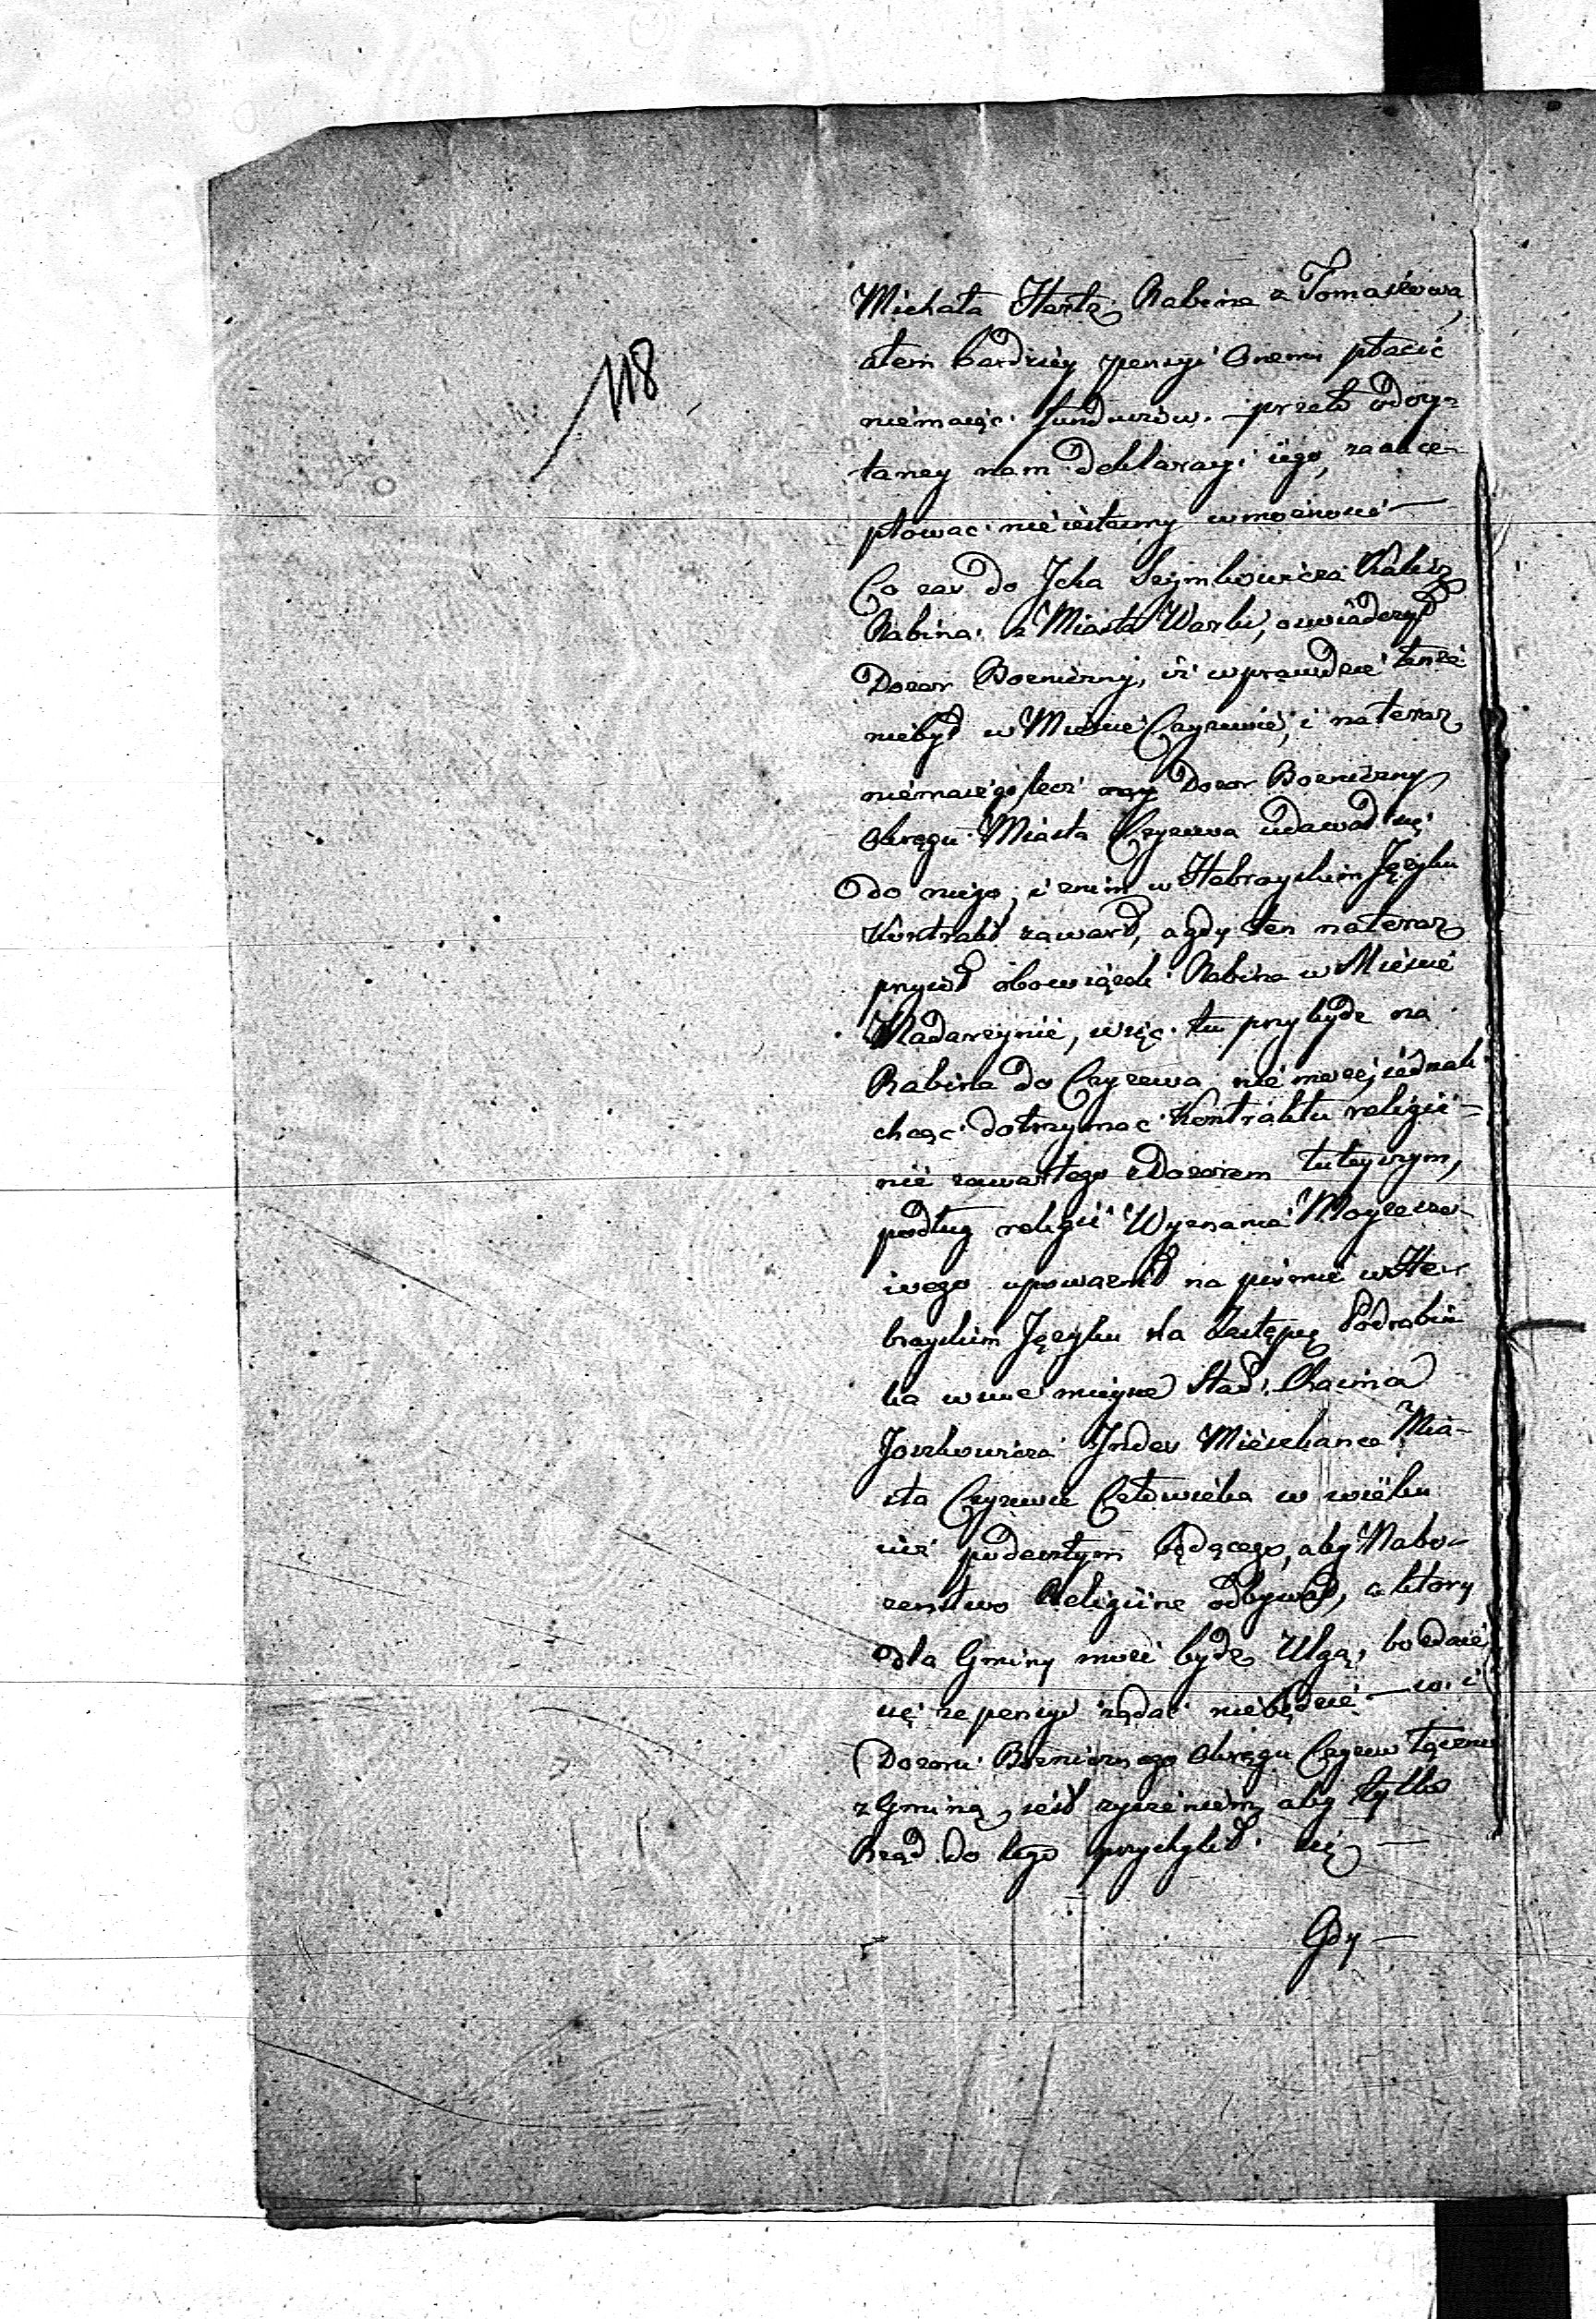 118
Michała Hertz Rabina z Tomaszewa,
atem bardziey pensyi Onemu płacić
niemaiąc funduszów. przeto odczy=
taney nam deklaracyi iego, zaakce-
ptować nieiesteśmy wmożności —
Co zaś do Icka Szymkowicza
Rabina z Miasta Warki, oswiadczył
Dozor Boźniczny, iż wprawdzie tenże
niebył w Mieście Czyzewie, i nateraz
niemaiego lecz Dozor Boźniczny
Okręgu Miasta Czyzewa udawał się
do niego, i znim w Hebrayskim Języku
Kontrakt zawarł, agdy ten nateraz
przyiął obowiązek Rabina w Mieście
Nadarzynie, więc tu przybydź na
Rabina do Czyzewa nie może, iednak
chcąc dotrzymać Kontraktu religii-
nie zawartego zDozorem tuteyszym,
podług religii Wyznania Moyzeszo-
wego upoważnił na piśmie w He-
brayskim Języku na Zastępcę Podrabin
ka wswe mieysce Chaima
Joskowicza Mieszkańca Mia-
sta Czyzewa Człowieka w wieku
iuż podeszłym będącego, aby Nabo-
żeństwo Religiine odbywał, a który
dla Gminy może bydź Ulgą, bo
się że pensyi żądać niebędzie —
Dozoru Boźnicznego Okręgu Czyzew łącznie
z Gminą, iest życzeniem aby tylko
Rząd do tego przychylił się —
Gdy —